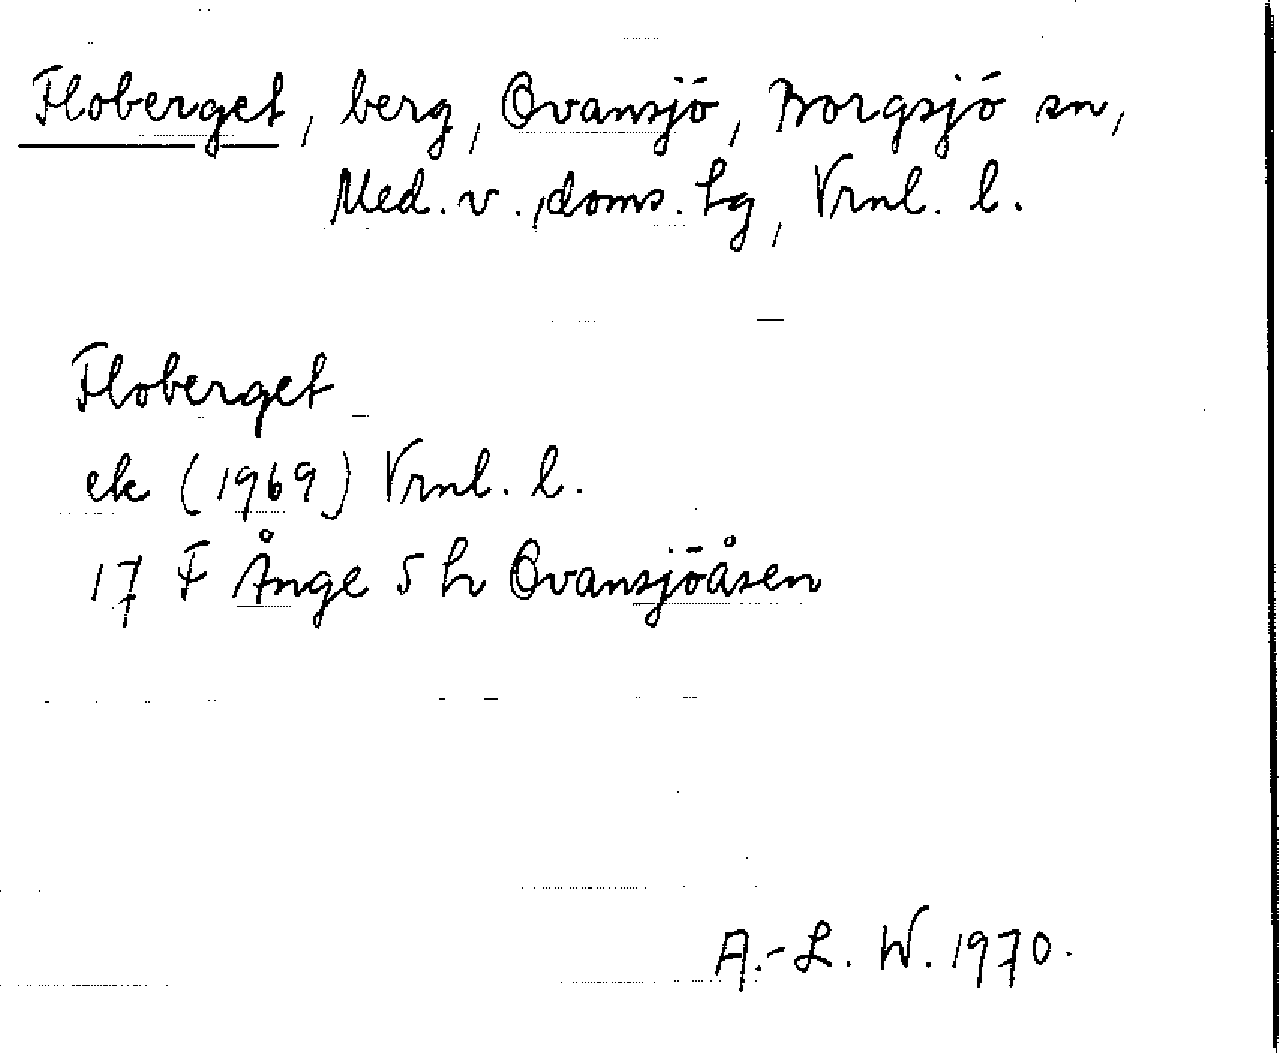 Floberget, berg, Ovansjö, Borgsjö sn,
Med. v., doms. hg, Vrnl. l.
Floberget
ek (1969) Vrnl. l.
17 F Ånge 5 h Ovansjöåsen
A.-L. W. 1970.